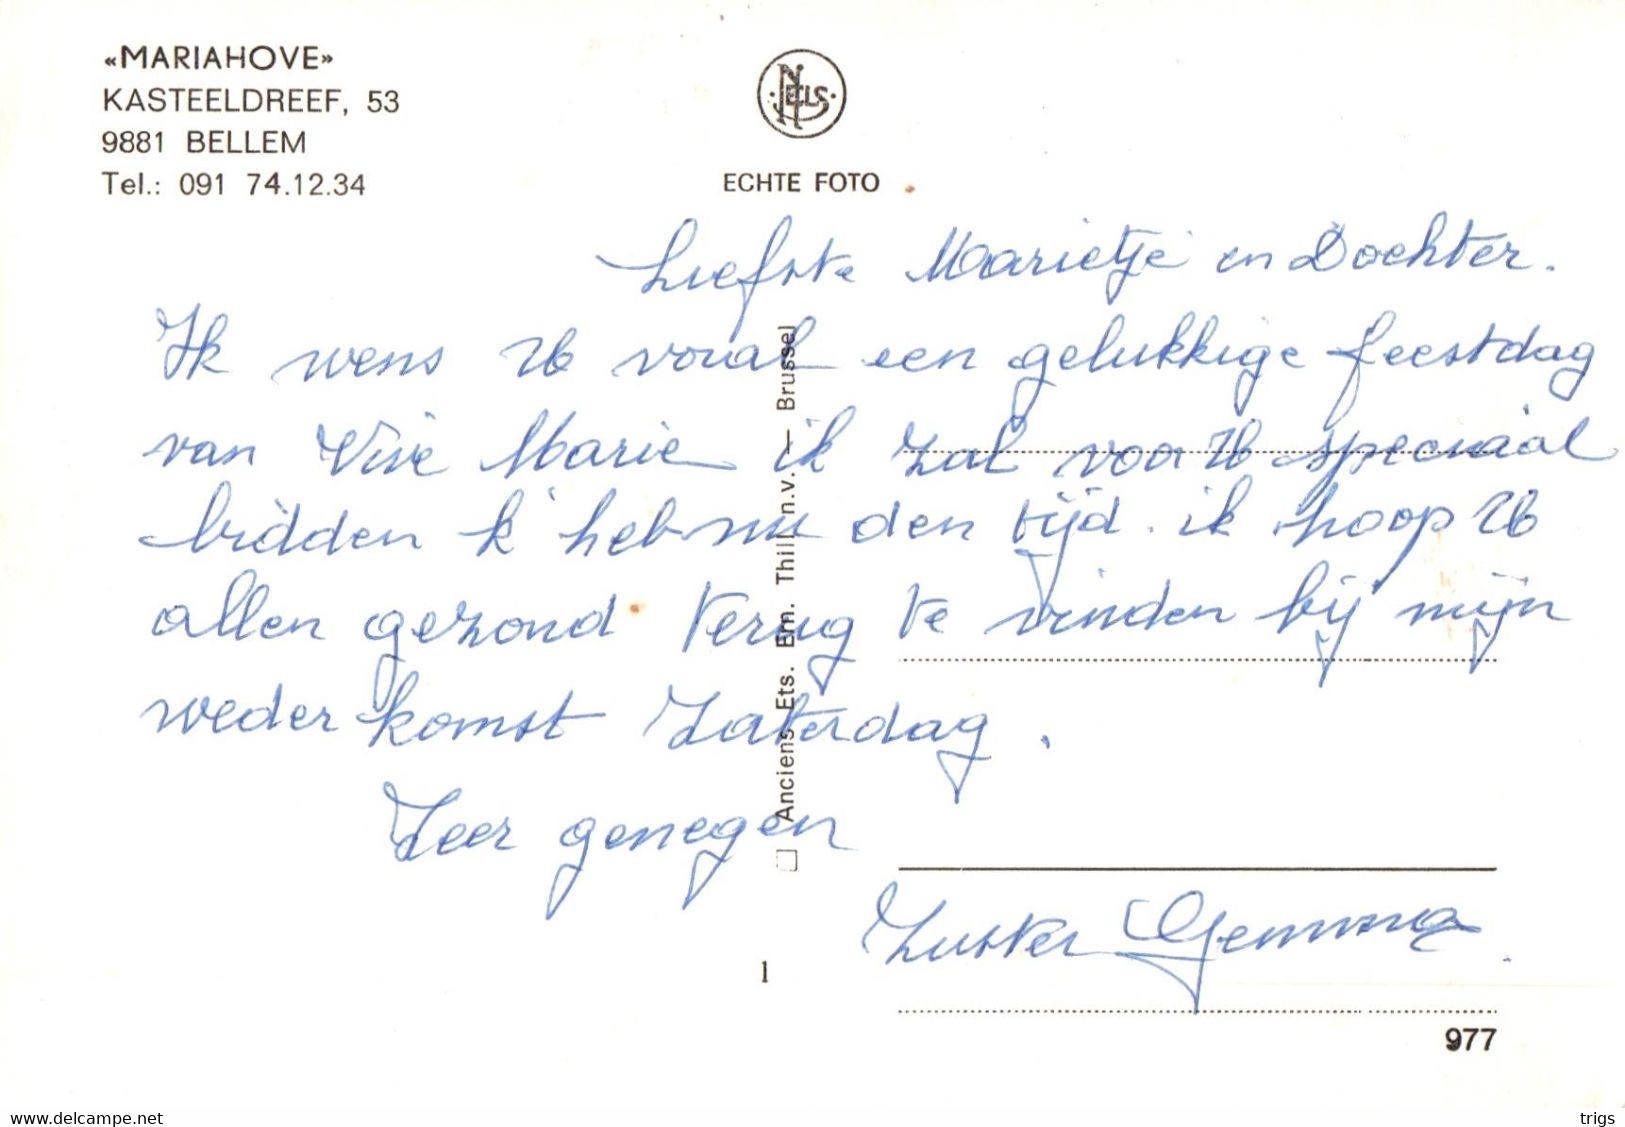 «MARIAHOVE»
KASTEELDREEF, 53
9881 BELLEM
Tel.: 091 74.12.34
NELS
ECHTE FOTO
Liefste Marietje en Dochter.
Ik wens U vooral een gelukkige feestdag
van Vive Marie ik zal voor U speciaal
bidden k' heb nu den tijd. ik hoop U
allen gezond terug te vinden bij mijn
weder komst Zaterdag.
Zeer genegen
Zuster Gemma.
Anciens Ets. Ern. Thill n.v. — Brussel
1
977
www.delcampe.net
trigs